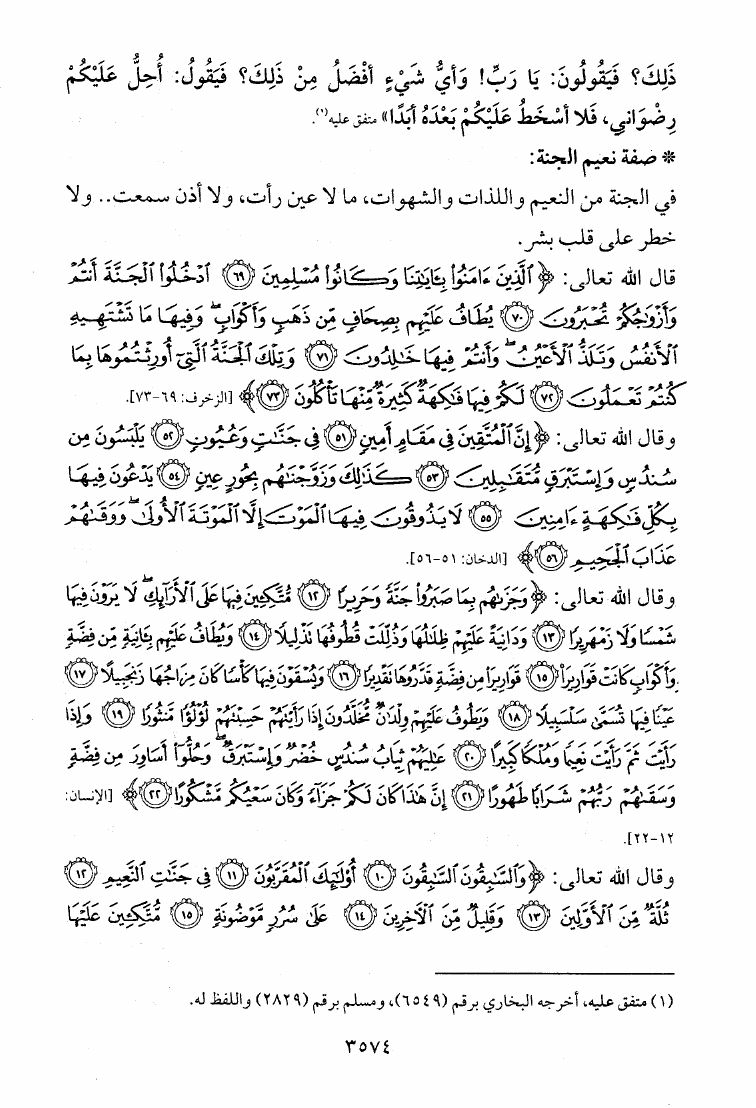 ذَلِكَ؟ فَيَقُولُونَ: يَا رَبِّ! وَأَيُّ شَيْءٍ أَفْضَلُ مِنْ ذَلِكَ؟ فَيَقُولُ: أُحِلُّ عَلَيْكُمْ
رِضْوَانِي، فَلا أَسْخَطُ عَلَيْكُمْ بَعْدَهُ أَبَدًا» متفق عليه(١).
* صفة نعيم الجنة:
في الجنة من النعيم واللذات والشهوات، ما لا عين رأت، ولا أذن سمعت.. ولا
خطر على قلب بشر.
قال الله تعالى: ﴿ٱلَّذِينَ ءَامَنُوا۟ بِـَٔايَـٰتِنَا وَكَانُوا۟ مُسْلِمِينَ ﴿٦٩﴾ ٱدْخُلُوا۟ ٱلْجَنَّةَ أَنتُمْ
وَأَزْوَٰجُكُمْ تُحْبَرُونَ ﴿٧٠﴾ يُطَافُ عَلَيْهِم بِصِحَافٍ مِّن ذَهَبٍ وَأَكْوَابٍ ۖ وَفِيهَا مَا تَشْتَهِيهِ
ٱلْأَنفُسُ وَتَلَذُّ ٱلْأَعْيُنُ ۖ وَأَنتُمْ فِيهَا خَـٰلِدُونَ ﴿٧١﴾ وَتِلْكَ ٱلْجَنَّةُ ٱلَّتِىٓ أُورِثْتُمُوهَا بِمَا
كُنتُمْ تَعْمَلُونَ ﴿٧٢﴾ لَكُمْ فِيهَا فَـٰكِهَةٌ كَثِيرَةٌ مِّنْهَا تَأْكُلُونَ ﴿٧٣﴾﴾ [الزخرف: ٦٩-٧٣].
وقال الله تعالى: ﴿إِنَّ ٱلْمُتَّقِينَ فِى مَقَامٍ أَمِينٍ ﴿٥١﴾ فِى جَنَّـٰتٍ وَعُيُونٍ ﴿٥٢﴾ يَلْبَسُونَ مِن
سُندُسٍ وَإِسْتَبْرَقٍ مُّتَقَـٰبِلِينَ ﴿٥٣﴾ كَذَٰلِكَ وَزَوَّجْنَـٰهُم بِحُورٍ عِينٍ ﴿٥٤﴾ يَدْعُونَ فِيهَا
بِكُلِّ فَـٰكِهَةٍ ءَامِنِينَ ﴿٥٥﴾ لَا يَذُوقُونَ فِيهَا ٱلْمَوْتَ إِلَّا ٱلْمَوْتَةَ ٱلْأُولَىٰ ۖ وَوَقَىٰهُمْ
عَذَابَ ٱلْجَحِيمِ ﴿٥٦﴾﴾ [الدخان: ٥١-٥٦].
وقال الله تعالى: ﴿وَجَزَىٰهُم بِمَا صَبَرُوا۟ جَنَّةً وَحَرِيرًا ﴿١٢﴾ مُّتَّكِـِٔينَ فِيهَا عَلَى ٱلْأَرَآئِكِ ۖ لَا يَرَوْنَ فِيهَا
شَمْسًا وَلَا زَمْهَرِيرًا ﴿١٣﴾ وَدَانِيَةً عَلَيْهِمْ ظِلَـٰلُهَا وَذُلِّلَتْ قُطُوفُهَا تَذْلِيلًا ﴿١٤﴾ وَيُطَافُ عَلَيْهِم بِـَٔانِيَةٍ مِّن فِضَّةٍ
وَأَكْوَابٍ كَانَتْ قَوَارِيرَا۠ ﴿١٥﴾ قَوَارِيرَا۟ مِن فِضَّةٍ قَدَّرُوهَا تَقْدِيرًا ﴿١٦﴾ وَيُسْقَوْنَ فِيهَا كَأْسًا كَانَ مِزَاجُهَا زَنجَبِيلًا ﴿١٧﴾
عَيْنًا فِيهَا تُسَمَّىٰ سَلْسَبِيلًا ﴿١٨﴾ وَيَطُوفُ عَلَيْهِمْ وِلْدَٰنٌ مُّخَلَّدُونَ إِذَا رَأَيْتَهُمْ حَسِبْتَهُمْ لُؤْلُؤًا مَّنثُورًا ﴿١٩﴾ وَإِذَا
رَأَيْتَ ثَمَّ رَأَيْتَ نَعِيمًا وَمُلْكًا كَبِيرًا ﴿٢٠﴾ عَـٰلِيَهُمْ ثِيَابُ سُندُسٍ خُضْرٌ وَإِسْتَبْرَقٌ ۖ وَحُلُّوٓا۟ أَسَاوِرَ مِن فِضَّةٍ
وَسَقَىٰهُمْ رَبُّهُمْ شَرَابًا طَهُورًا ﴿٢١﴾ إِنَّ هَـٰذَا كَانَ لَكُمْ جَزَآءً وَكَانَ سَعْيُكُم مَّشْكُورًا ﴿٢٢﴾﴾ [الإنسان:
١٢-٢٢].
وقال الله تعالى: ﴿وَٱلسَّـٰبِقُونَ ٱلسَّـٰبِقُونَ ﴿١٠﴾ أُو۟لَـٰٓئِكَ ٱلْمُقَرَّبُونَ ﴿١١﴾ فِى جَنَّـٰتِ ٱلنَّعِيمِ ﴿١٢﴾
ثُلَّةٌ مِّنَ ٱلْأَوَّلِينَ ﴿١٣﴾ وَقَلِيلٌ مِّنَ ٱلْـَٔاخِرِينَ ﴿١٤﴾ عَلَىٰ سُرُرٍ مَّوْضُونَةٍ ﴿١٥﴾ مُّتَّكِـِٔينَ عَلَيْهَا
(١) متفق عليه، أخرجه البخاري برقم (٦٥٤٩)، ومسلم برقم (٢٨٢٩) واللفظ له.
٣٥٧٤